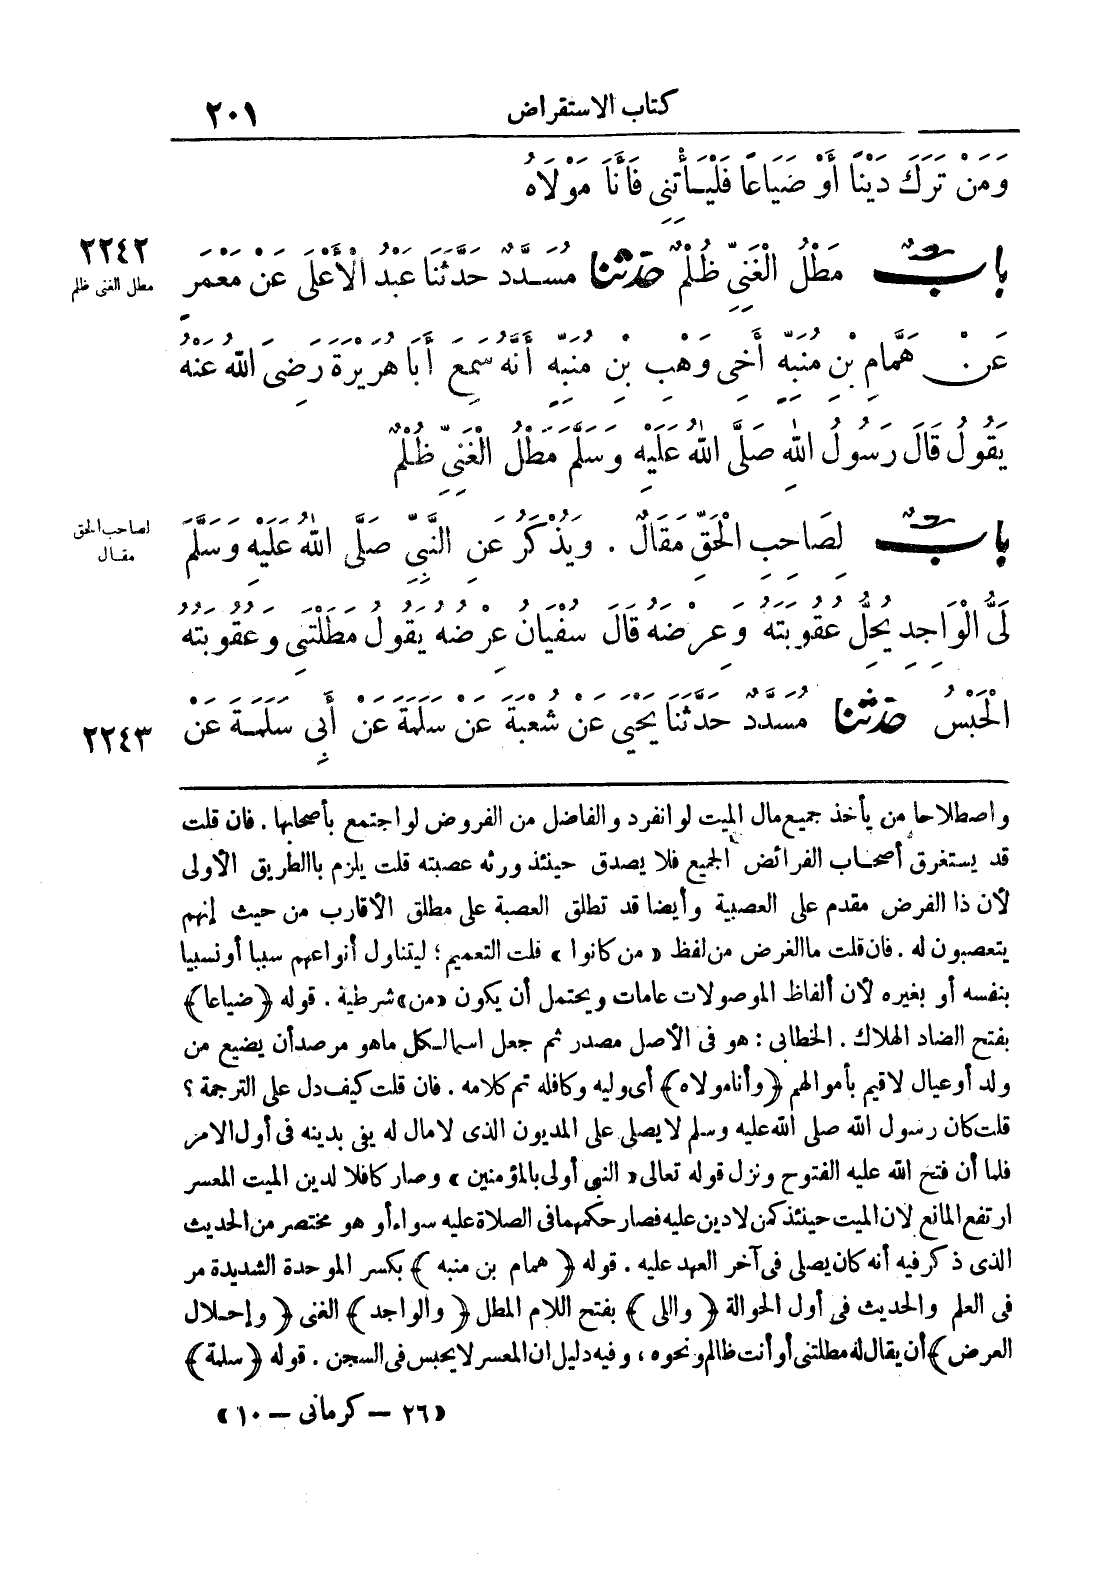 كتاب الاستقراض ٢٠١
وَمَنْ تَرَكَ دَيْنًا أَوْ ضَيَاعًا فَلْيَأْتِنِى فَأَنَا مَوْلَاهُ
بابٌ مَطْلُ الْغَنِىِّ ظُلْمٌ حدثنا مُسَدَّدٌ حَدَّثَنَا عَبْدُ الْأَعْلَى عَنْ مَعْمَرٍ
٢٢٤٢
مطل الغنى ظلم
عَنْ هَمَّامِ بْنِ مُنَبِّهٍ أَخِى وَهْبِ بْنِ مُنَبِّهٍ أَنَّهُ سَمِعَ أَبَا هُرَيْرَةَ رَضِىَ اللهُ عَنْهُ
يَقُولُ قَالَ رَسُولُ اللهِ صَلَّى اللهُ عَلَيْهِ وَسَلَّمَ مَطْلُ الْغَنِىِّ ظُلْمٌ
بابٌ لِصَاحِبِ الْحَقِّ مَقَالٌ . وَيُذْكَرُ عَنِ النَّبِىِّ صَلَّى اللهُ عَلَيْهِ وَسَلَّمَ
لصاحب الحق
مقال
لَىُّ الْوَاجِدِ يُحِلُّ عُقُوبَتَهُ وَعِرْضَهُ قَالَ سُفْيَانُ عِرْضُهُ يَقُولُ مَطَلْتَنِى وَعُقُوبَتُهُ
الْحَبْسُ حدثنا مُسَدَّدٌ حَدَّثَنَا يَحْيَى عَنْ شُعْبَةَ عَنْ سَلَمَةَ عَنْ أَبِى سَلَمَةَ عَنْ
٢٢٤٣
واصطلاحا من يأخذ جميع مال الميت لو انفرد والفاضل من الفروض لو اجتمع بأصحابها . فان قلت
قد يستغرق أصحاب الفرائض الجميع فلا يصدق حينئذ ورثه عصبته قلت يلزم باالطريق الأولى
لأن ذا الفرض مقدم على العصبية وأيضا قد تطلق العصبة على مطلق الأقارب من حيث إنهم
يتعصبون له . فان قلت ما الغرض من لفظ « من كانوا » قلت التعميم ؛ ليتناول أنواعهم سببا أو نسبيا
بنفسه أو بغيره لأن ألفاظ الموصولات عامات ويحتمل أن يكون «من» شرطية . قوله ﴿ضياعا﴾
بفتح الضاد الهلاك . الخطابى : هو فى الأصل مصدر ثم جعل اسما لكل ما هو مرصد أن يضيع من
ولد أو عيال لا قيم بأموالهم ﴿وأنا مولاه﴾ أى وليه وكافله تم كلامه . فان قلت كيف دل على الترجمة ؟
قلت كان رسول الله صلى الله عليه وسلم لا يصلى على المديون الذى لا مال له يفى بدينه فى أول الامر
فلما أن فتح الله عليه الفتوح ونزل قوله تعالى « النبى أولى بالمؤمنين » وصار كافلا لدين الميت المعسر
ارتفع المانع لان الميت حينئذ كمن لا دين عليه فصار حكمهما فى الصلاة عليه سواء أو هو مختصر من الحديث
الذى ذكر فيه أنه كان يصلى فى آخر العهد عليه . قوله ﴿ همام بن منبه ﴾ بكسر الموحدة الشديدة مر
فى العلم والحديث فى أول الحوالة ﴿ واللى ﴾ بفتح اللام المطل ﴿ والواجد ﴾ الغنى ﴿ وإحلال
العرض ﴾ أن يقال له مطلتنى أو أنت ظالم ونحوه ، وفيه دليل ان المعسر لا يحبس فى السجن . قوله ﴿سلمة﴾
«٢٦ – كرمانى – ١٠»